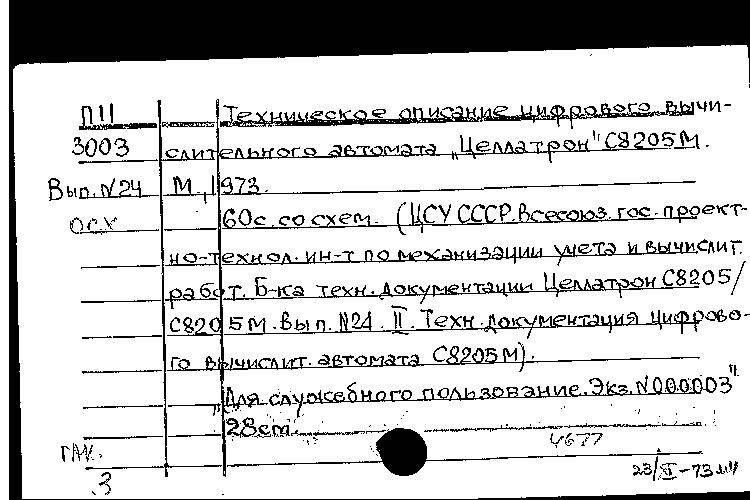 П11 Техническое описание цифрового вычи-
3003 слительного автомата „Целлатрон" С8205М.
Вып.N24 М., 1973.
ОСХ 60с. со схем. (ЦСУ СССР. Всесоюз. гос. проект-
но-технол. ин-т по механизации учета и вычислит.
работ. Б-ка техн. документации Целлатрон С8205/
С8205М. Вып. N24. II. Техн. документация цифрово-
го вычислит. автомата С8205М).
„Для служебного пользование. Экз. N000003".
28см.
4677
23/ -73
3